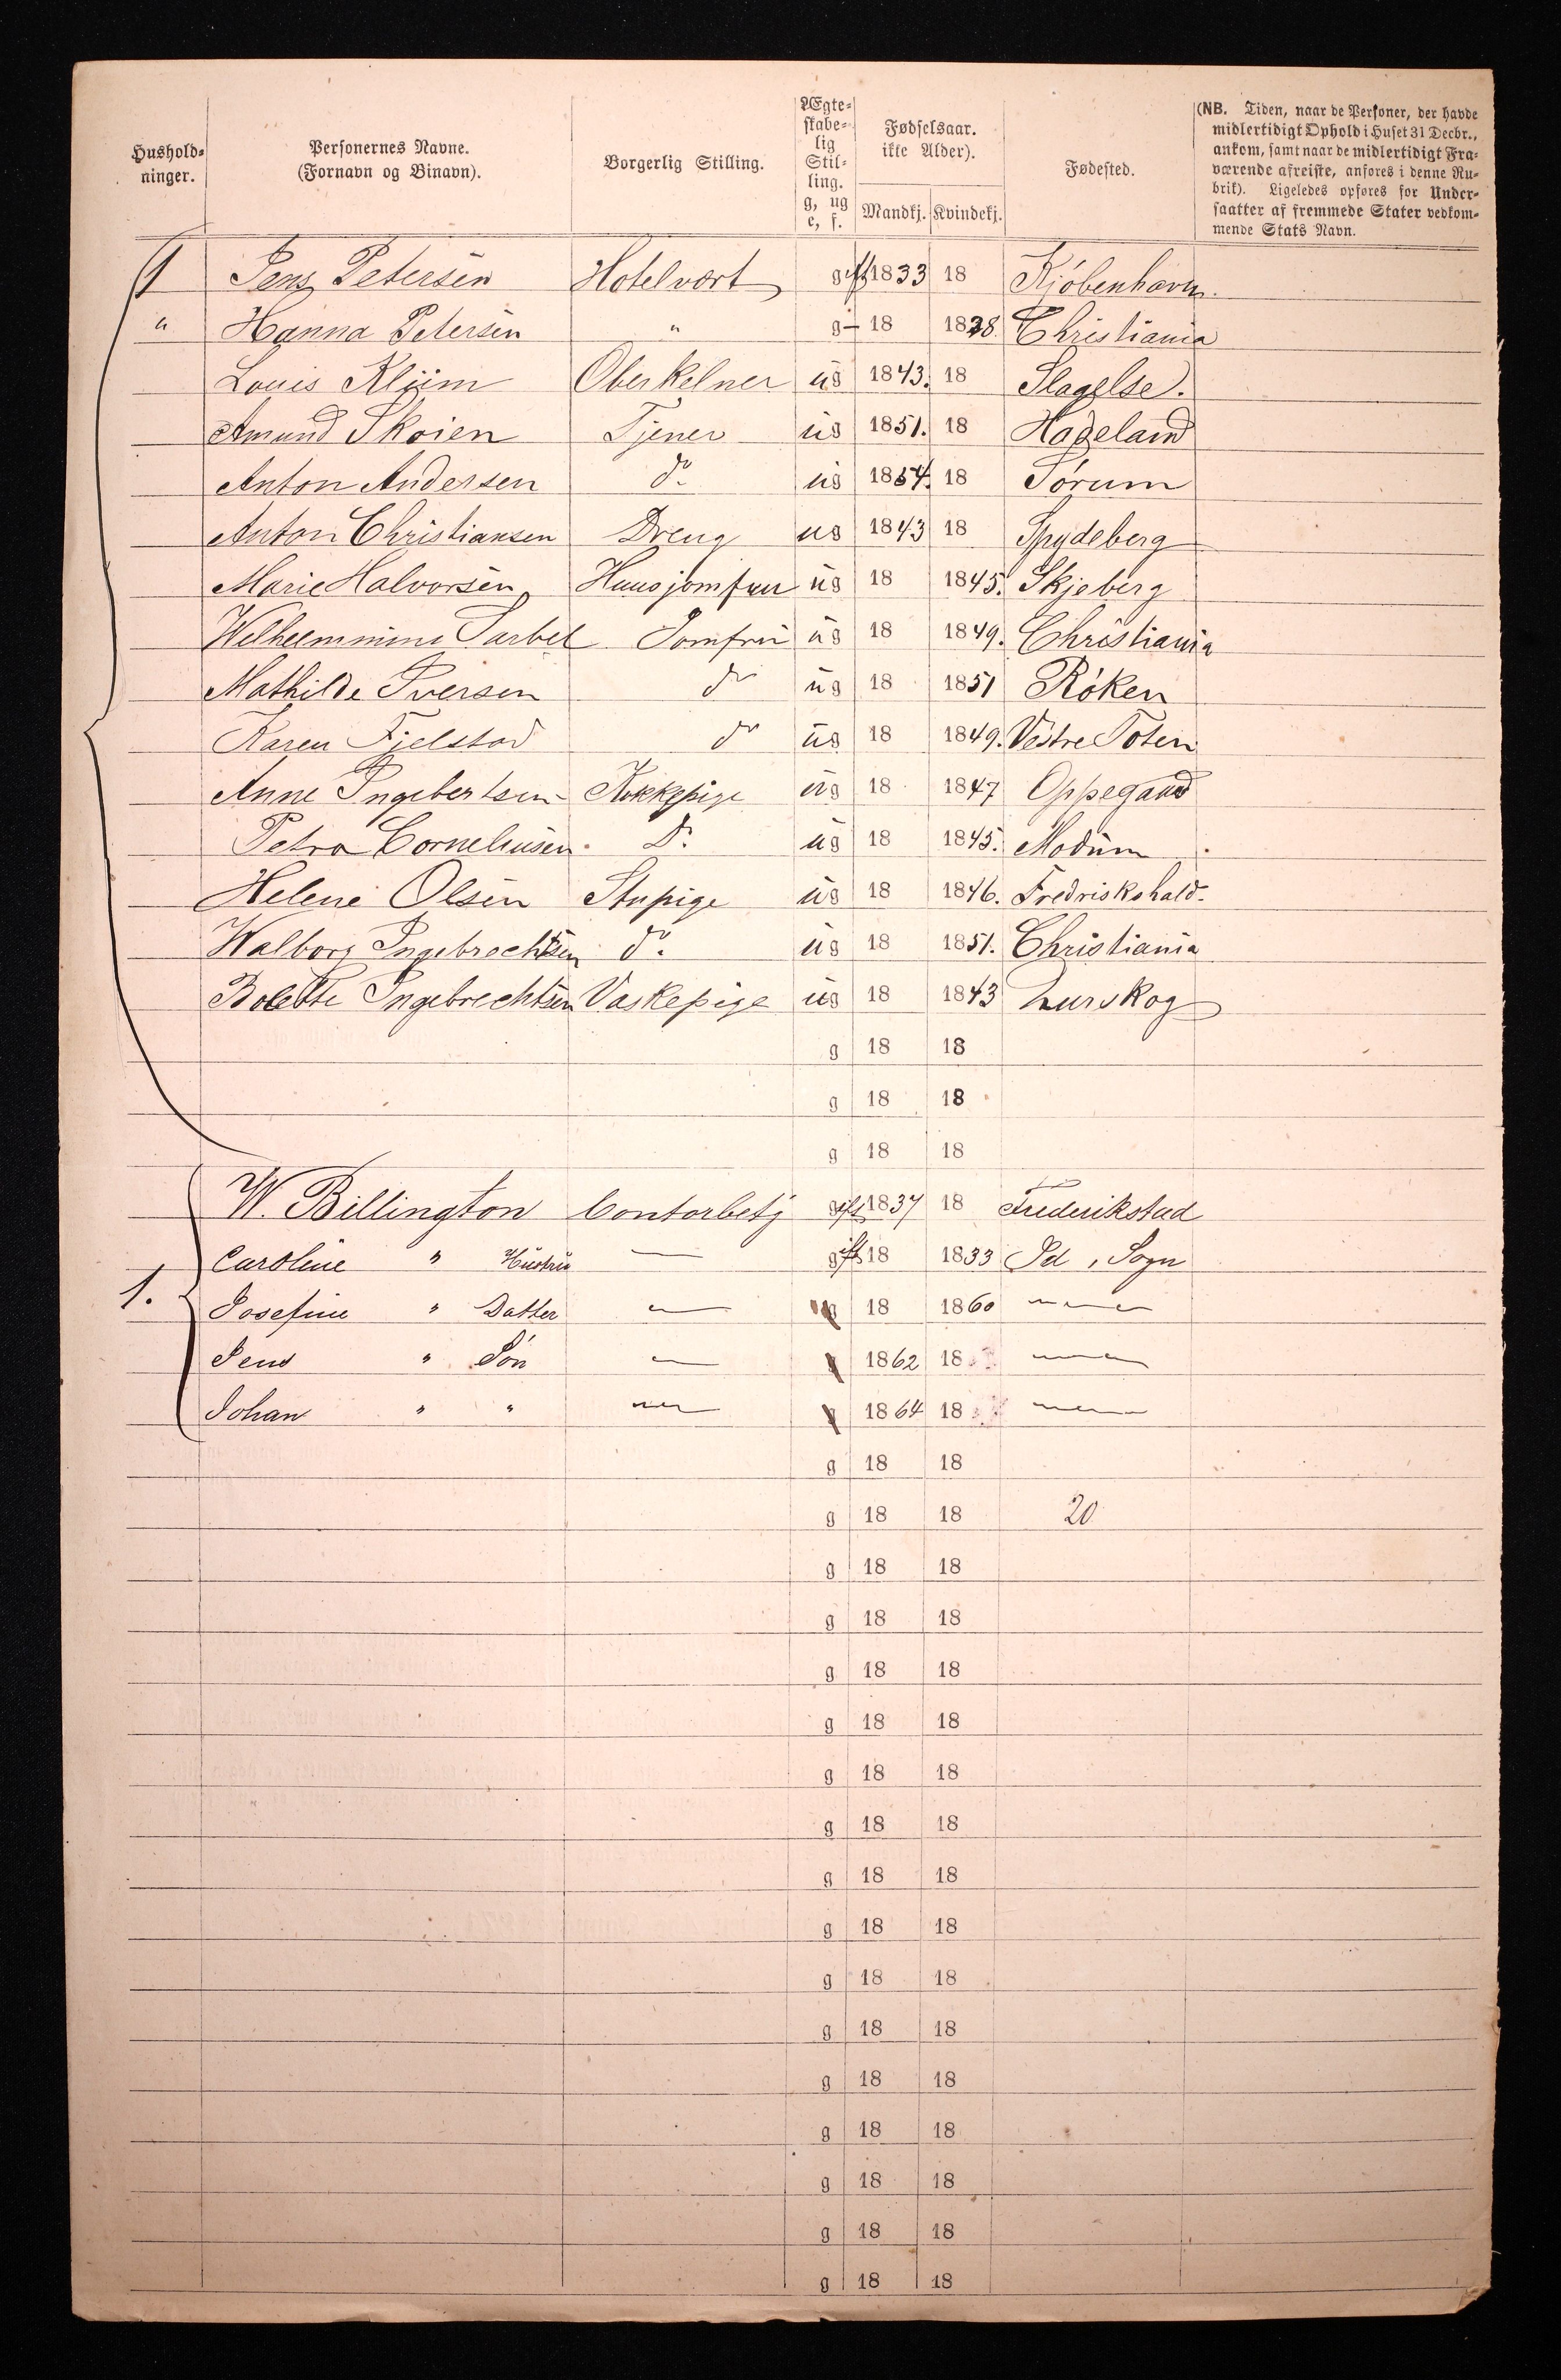 Hushold-
ninger.
Personernes Navne.
(Fornavn og Binavn).
Borgerlig Stilling.
Ægte-
skabe-
lig
Stil-
ling.
g, ug
e, f.
Fødselsaar.
ikke Alder).
Mandkj. Kvindekj.
Fødested.
(NB. Tiden, naar de Personer, der havde
midlertidigt Ophold i Huset 31 Decbr.,
ankom, samt naar de midlertidigt Fra-
værende afreiste, anføres i denne Ru-
brik). Ligeledes opføres for Under-
saatter af fremmede Stater vedkom-
mende Stats Navn.
1 Jens Petersen Hotelvært gift 1833 18 Kjöbenhavn.
" Hanna Petersen " g- 18 1838. Christiania
Louis Klüm Oberkelner ug 1843. 18 Slagelse.
Amund Skoien Tjener ug 1851. 18 Hadeland
Anton Andersen do. ug 1854. 18 Sörum
Anton Christiansen Dreng ug 1843 18 Spydeberg
Marie Halvorsen Huusjomfru ug 18 1845. Skjeberg
Jomfru ug 18 1849. Christiania
Mathilde Iversen do ug 18 1851 Röken
Karen Fjelstad do ug 18 1849. Vestre Toten
Anne Ingebertsen Kokkepige ug 18 1847 Oppegaard
Petra Corneliusen Do. ug 18 1845. Modum
Helene Olsen Stupige ug 18 1846. Fredrikshald.
Walborg Ingebrechtsen do. ug 18 1851. Christiania
Bolette Ingebrechtsen Vaskepige ug 18 1843 Lurskog
g 18 18
g 18 18
g 18 18
W. Billington Contorbetj gift 1837 18 Frederikstad
Caroline " Hustru — gift 18 1833 Id, Sogn
1. Josefine " Datter — 18 1860 —
Jens " Sön — g 1862 18 —
Johan " " — g 1864 18 —
g 18 18
g 18 18 20
g 18 18
g 18 18
g 18 18
g 18 18
g 18 18
g 18 18
g 18 18
g 18 18
g 18 18
g 18 18
g 18 18
g 18 18
g 18 18
g 18 18
g 18 18